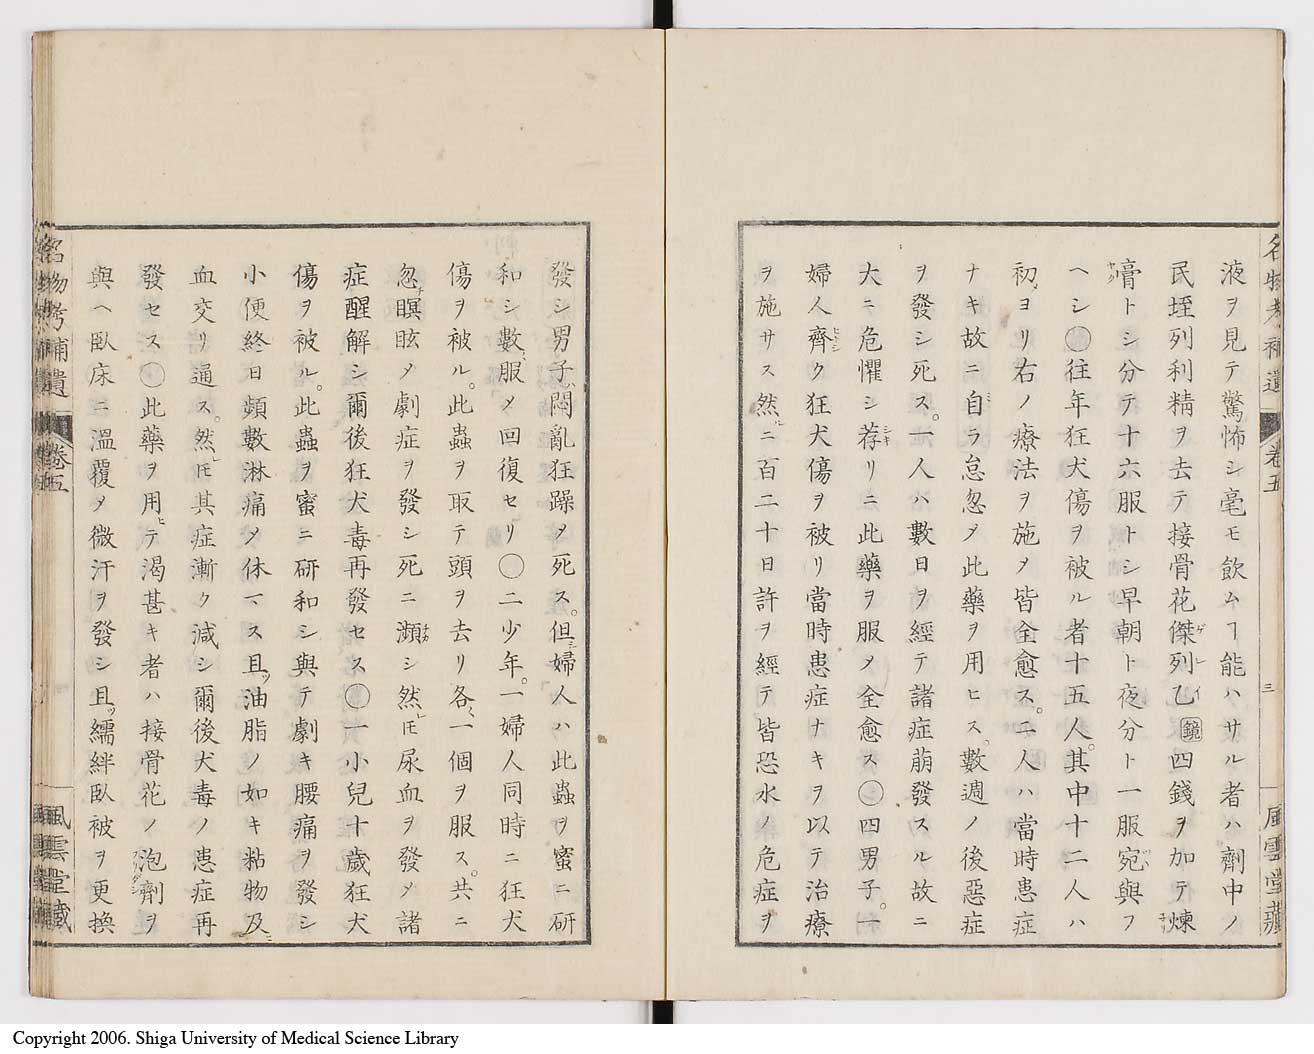 名物考補遺 卷五 三 風雲堂藏
液ヲ見テ驚怖シ毫モ飲ムヿ能ハサル者ハ劑中ノ
民垤列利精ヲ去テ接骨花傑列乙鏡四錢ヲ加テ煉
膏トシ分テ十六服トシ早朝ト夜分ト一服宛與フ
ヘシ○往年狂犬傷ヲ被ル者十五人。其中十二人ハ
初ヨリ右ノ療法ヲ施メ皆全愈ス。二人ハ當時患症
ナキ故ニ自ラ怠忽メ此藥ヲ用ヒス。數週ノ後惡症
ヲ發シ死ス。一人ハ數日ヲ經テ諸症萠發スル故ニ
大ニ危懼シ荐リニ此藥ヲ服メ全愈ス○四男子。一
婦人齊ク狂犬傷ヲ被リ當時患症ナキヲ以テ治療
ヲ施サス然ルニ百二十日許ヲ經テ皆恐水ノ危症ヲ
發シ男子ハ悶亂狂躁メ死ス。但婦人ハ此蟲ヲ蜜ニ研
和シ數服メ回復セリ○二少年。一婦人同時ニ狂犬
傷ヲ被ル。此蟲ヲ取テ頭ヲ去リ各、一個ヲ服ス。共ニ
忽チ瞑眩メ劇症ヲ發シ死ニ瀕シ然レ𪜈尿血ヲ發メ諸
症醒解シ爾後狂犬毒再發セス○一小兒十歲狂犬
傷ヲ被ル。此蟲ヲ蜜ニ研和シ與テ劇キ腰痛ヲ發シ
小便終日頻數淋痛メ休マス且ツ油脂ノ如キ粘物及
血交リ通ス。然レ𪜈其症漸ク減シ爾後犬毒ノ患症再
發セス○此藥ヲ用ヒテ渴甚キ者ハ接骨花ノ泡劑ヲ
與ヘ臥床ニ溫覆メ微汗ヲ發シ且ツ繻絆臥被ヲ更換
名物考補遺 卷五 風雲堂藏
Copyright 2006. Shiga University of Medical Science Library